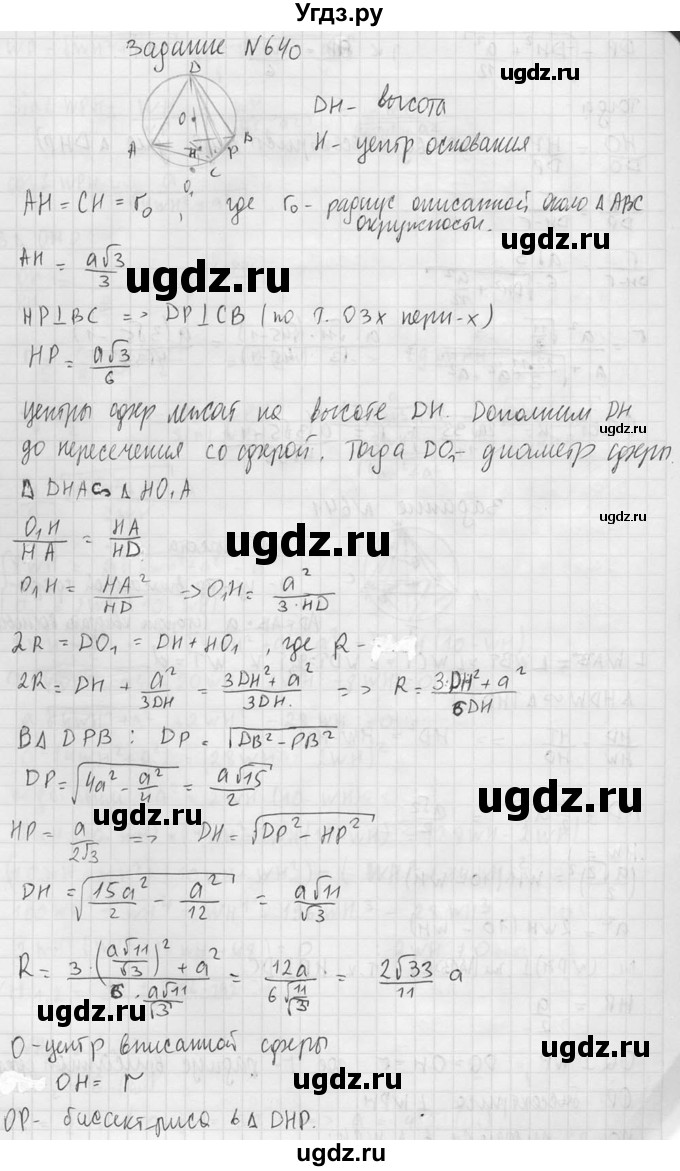 Угдз.ру
Задание N640
ugdz.ru
ugdz.ru
D
O
A
B
H
P
C
O₁
DH - высота
H - центр основания
AH = CH = r₀, где r₀ - радиус описанной около Δ ABC
окружности.
AH = a√3/3
ugdz.ru
ugdz.ru
HP⊥BC => DP⊥CB (по т. о 3х перп-х)
HP = a√3/6
центры сфер лежат на высоте DH. Дополним DH
до пересечения со сферой. Тогда DO₁ - диаметр сферы.
Δ DHA ∾ Δ HO₁A
ugdz.ru
O₁H/HA = HA/HD
ugdz.ru
O₁H = HA²/HD => O₁H = a²/3·HD
2R = DO₁ = DH + HO₁, где R -
2R = DH + a²/3DH = 3DH² + a²/3DH. => R = 3·DH² + a²/6DH
В Δ DPB : DP = √DB² - PB²
DP = √4a² - a²/4 = a√15/2
ugdz.ru
ugdz.ru
HP = a/2√3 => DH = √DP² - HP²
DH = √15a²/2 - a²/12 = a√11/√3
R = 3·(a√11/√3)² + a²/6·a√11/√3 = 12a/6√11/√3 = 2√33/11 a
ugdz.ru
ugdz.ru
O - центр вписанной сферы
OH = r
OP - биссектриса в Δ DHP.
ugdz.ru
ugdz.ru